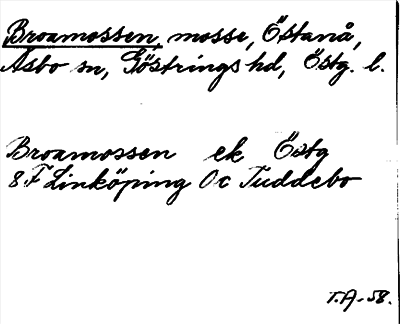 Broamossen, mosse, Östanå,
Åsbo sn, Göstrings hd, Östg. l.
Broamossen ek Östg
8F Linköping Oc Tuddebo
T.A-58.